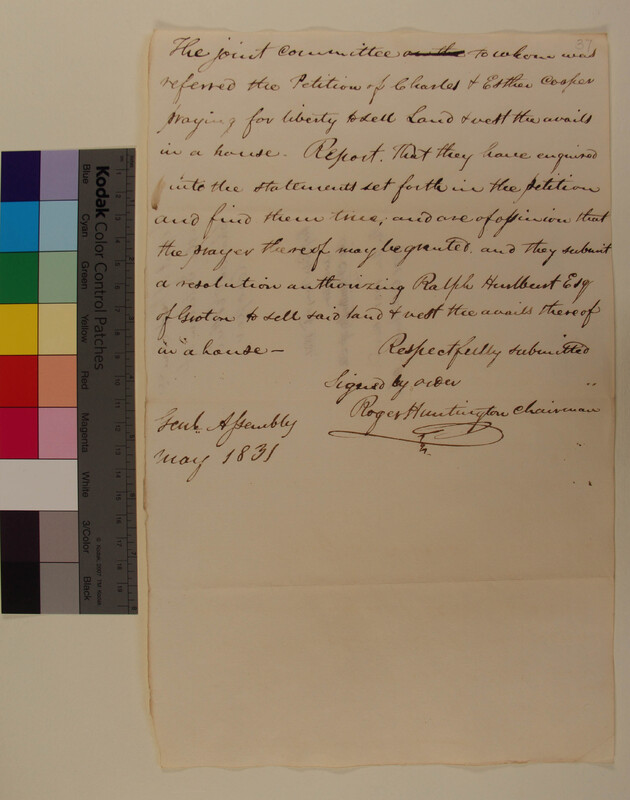 37
The joint committee on the to whom was
referred the Petition of Charles & Esther Cooper
praying for liberty to sell Land & vest the avails
in a house. Report. That they have enquired
into the statements set forth in the petition
and find them true, and are of opinion that
the prayer thereof may be granted. and they submit
a resolution authorizing Ralph Hurlburt Esq
of Groton to sell said land & vest the avails thereof
in a house –
Respectfully submitted
Signed by order
Roger Huntington Chairman
Genl. Assembly
May 1831
Kodak Color Control Patches
Blue
Cyan
Green
Yellow
Red
Magenta
White
3/Color
Black